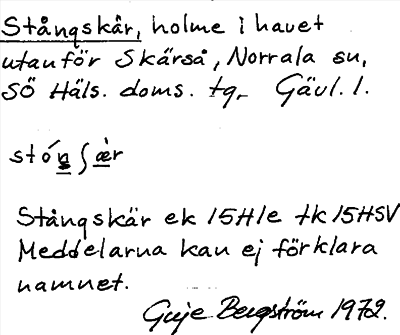 Stångskär, holme i havet
utanför Skärså, Norrala sn,
SÖ Häls. doms. tg. Gävl. l.
stóns ʃær
Stångskär ek 15H1e tk 15HSV
Meddelarna kan ej förklara
namnet.
Guje Bergström 1972.